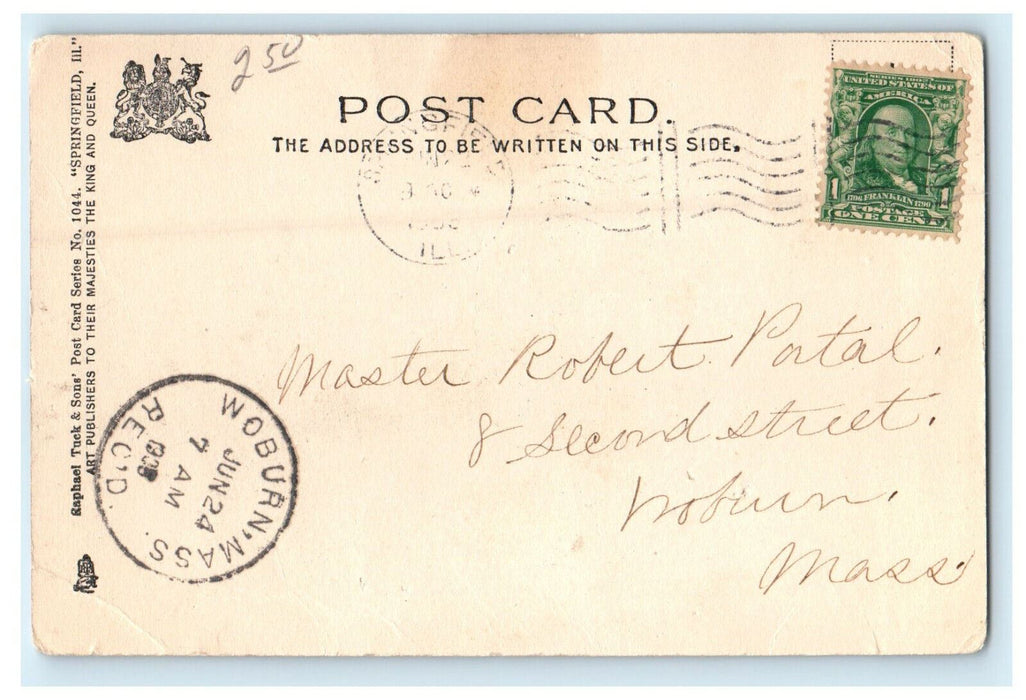 2 50
POST CARD.
THE ADDRESS TO BE WRITTEN ON THIS SIDE.
Raphael Tuck & Sons' Post Card Series No. 1044. "SPRINGFIELD, Ill."
ART PUBLISHERS TO THEIR MAJESTIES THE KING AND QUEEN.
SPRINGFIELD
ILL
SERIES 1902
UNITED STATES OF
AMERICA
1706 FRANKLIN 1790
POSTAGE
1 ONE CENT 1
Master Robert Portal.
8 Second street.
Woburn.
Mass.
WOBURN, MASS.
JUN 24
7 AM
REC'D.